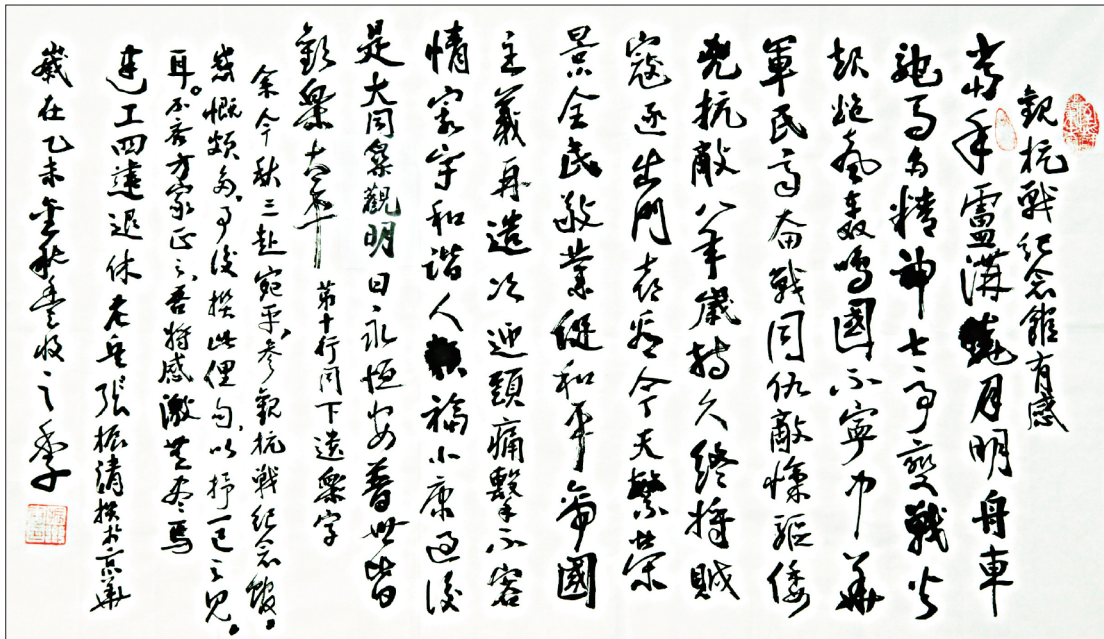 觀抗戰纪念館有感
當年盧溝曉月明舟車
駝馬為精神七七事變戰火
起炮氣轰鳴國不寧中華
軍民奋戰同仇敵愾驅倭
抗敵八年歲持久終将賊
寇逐出門喜看今天繁荣
景全民敬業促和平帝國
主義再造次迎頭痛擊不容
情家宇和谐人福小康過後
是大同樂觀明日永恒安普世皆
歡樂太平 第十行同下遗樂字
余今秋三赴宛平,参觀抗戰纪念馆。
感慨頗多,事後撰此俚句,以抒一己之見
耳。不吝方家正之,吾将感激無尽焉
建工四建退休老兵張振清撰於京華
嵗在乙未金秋豐收之季